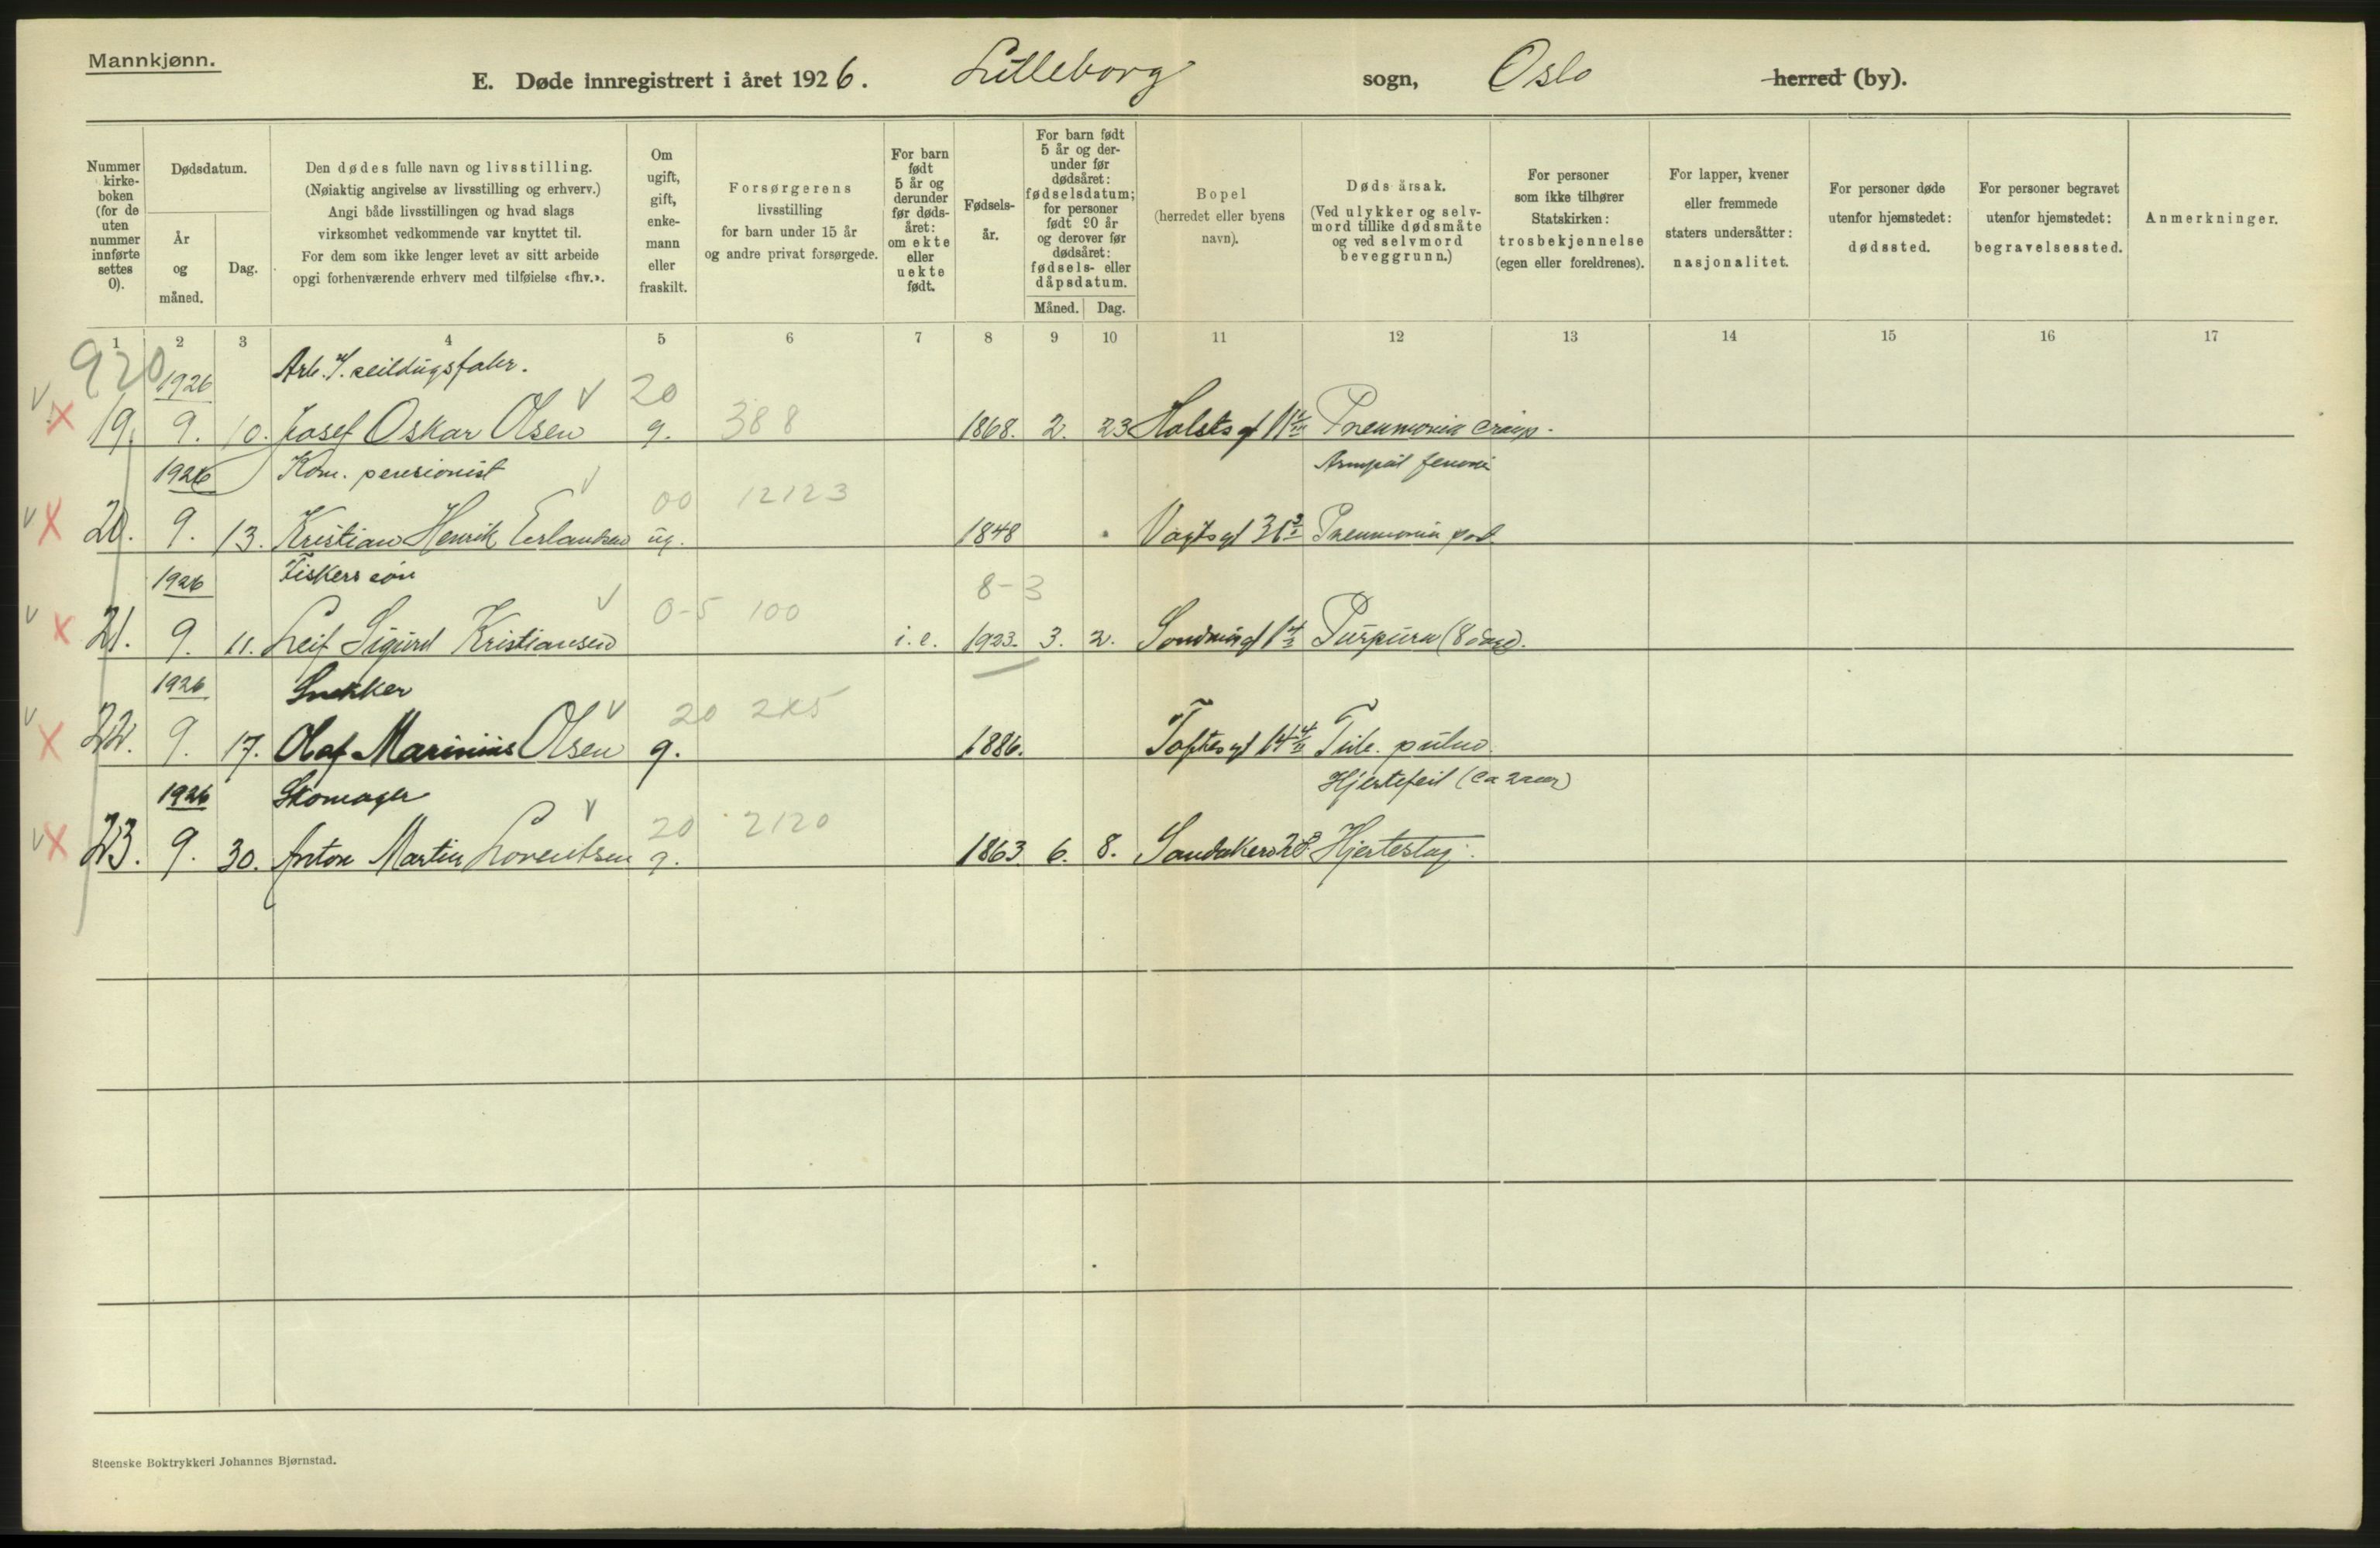 Mannkjønn.
E. Døde innregistrert i året 1926. Lilleborg sogn, Oslo herred (by).
Nummer kirke- boken (for de uten nummer innførte settes 0).
Dødsdatum.
År og måned.
Dag.
Den dødes fulle navn og livsstilling.
(Nøiaktig angivelse av livsstilling og erhverv.)
Angi både livsstillingen og hvad slags
virksomhet vedkommende var knyttet til.
For dem som ikke lenger levet av sitt arbeide
opgi forhenværende erhverv med tilføielse «fhv.».
Om ugift, gift, enke- mann eller fraskilt.
Forsørgerens
livsstilling
for barn under 15 år
og andre privat forsørgede.
For barn født 5 år og derunder før døds- året: om ekte eller uekte født.
Fødsels- år.
For barn født 5 år og der- under før dødsåret: fødselsdatum; for personer født 90 år og derover før dødsåret: fødsels- eller dåpsdatum.
Måned. Dag.
Bopel
(herredet eller byens navn).
Dødsårsak.
(Ved ulykker og selv- mord tillike dødsmåte og ved selvmord beveggrunn.)
For personer som ikke tilhører Statskirken: trosbekjennelse (egen eller foreldrenes).
For lapper, kvener eller fremmede staters undersåtter: nasjonalitet.
For personer døde utenfor hjemstedet: dødssted.
For personer begravet utenfor hjemstedet: begravelsessted.
Anmerkninger.
1 2 3 4 5 6 7 8 9 10 11 12 13 14 15 16 17
920
1926 Arb. v. seildugsfabr. 20
19. 9. 10. Josef Oskar Olsen g. 388 1868. 2. 23 Pneumonia croup.
1926 Kom. pensionist
00 12123
20. 9. 13. Kristian Henrik Erlandsen ug. 1848 Vogtsgt Pneumonia
1926 Fiskers søn 8-3
0-5 100
21. 9. 11. Leif Sigurd Kristiansen i. e. 1923. 3. 2. Purpura
1926 Snekker
20 2x5
22. 9. 17. Olaf Marinius Olsen g. 1886. Toftesgt Tub. pulm.
1926 Skomager Hjertefeil (ca 2 aar)
20 2120
23. 9. 30. Anton Martin Lorentsen g. 1863. 6. 8. Hjerteslag.
Steenske Boktrykkeri Johannes Bjørnstad.